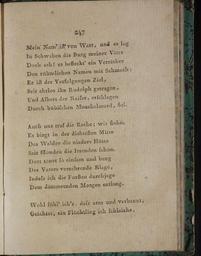 247
Mein Nam' ist von Wart, und es lag
In Schwaben die Burg meiner Väter
Doch ach! es befleckt' ein Verräther
Den rühmlichen Namen mit Schmach:
Er ist der Verfolgungen Ziel,
Seit ehrlos ihn Rudolph getragen,
Und Albert der Kaiser, erschlagen
Durch bübischen Meuchelmord, fiel.
Auch uns traf die Rache: wir flohn.
Es birgt in der düstersten Mitte
Des Waldes die niedere Hütte
Seit Monden die Irrenden schon.
Dort sonst ich einsam und bang
Des Vaters verzehrende Klage,
Indeß ich die Forsten durchjage
Dem dämmernden Morgen entlang.
Wohl fühl' ich's: daß arm und verbannt,
Geächtet, ein Flüchtling ich